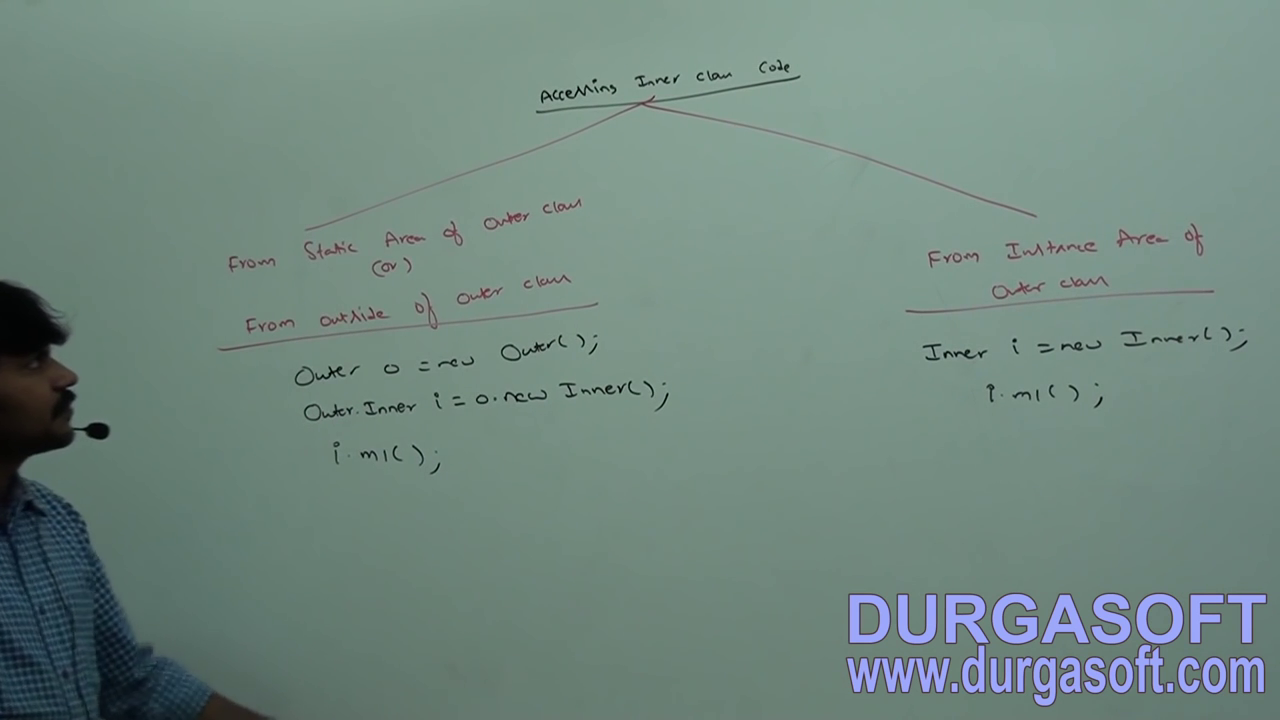 Accessing Inner class Code
From Static Area of Outer class
(or)
From outside of outer class
Outer o = new Outer();
Outer.Inner i = o.new Inner();
i.m1();
From Instance Area of
Outer class
Inner i = new Inner();
i.m1();
DURGASOFT
www.durgasoft.com